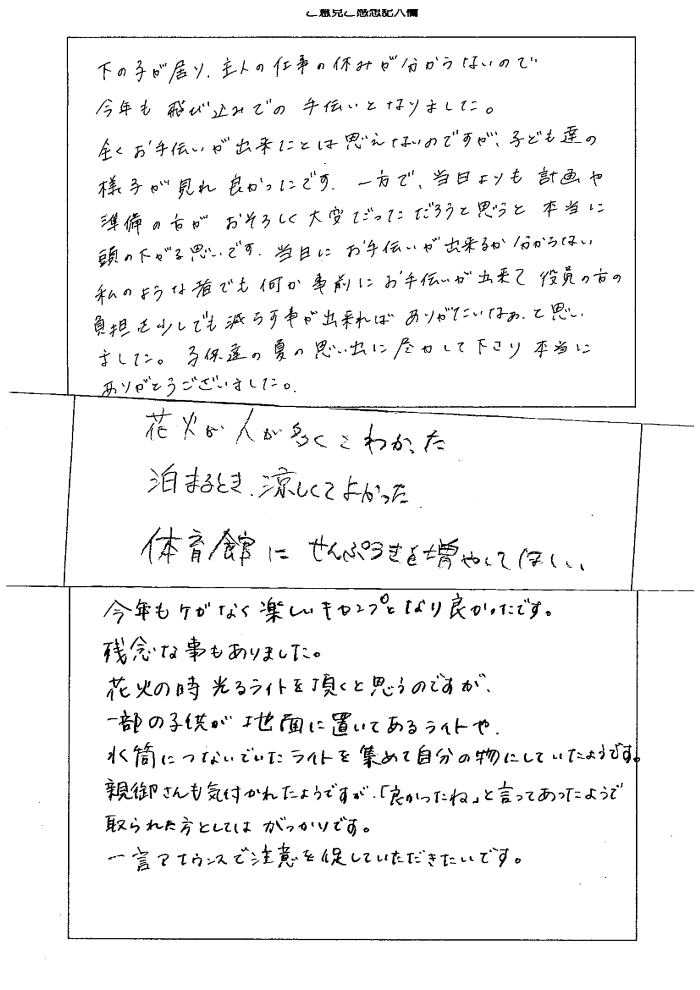 ご意見ご感想記入欄
下の子が居り、主人の仕事の休みが分からないので
今年も飛び込みでの手伝いとなりました。
全くお手伝いが出来たことは思えないのですが、子ども達の
様子が見れ良かったです。一方で、当日よりも計画や
準備の方がおそろしく大変だっただろうと思うと本当に
頭の下がる思いです。当日にお手伝いが出来るか分からない
私のような者でも何か事前にお手伝いが出来て役員の方の
負担を少しでも減らす事が出来ればありがたいなぁ、と思い
ました。子供達の夏の思い出に尽力して下さり本当に
ありがとうございました。
花火が人が多くこわかった
泊まるとき、涼しくてよかった
体育館にせんぷうきを増やしてほしい
今年もケガなく楽しいキャンプとなり良かったです。
残念な事もありました。
花火の時光るライトを頂くと思うのですが、
一部の子供が地面に置いてあるライトや、
水筒につないでいたライトを集めて自分の物にしていたようです。
親御さんも気付かれたようですが、「良かったね」と言ってあったようで
取られた方としてはがっかりです。
一言アナウンスで注意を促していただきたいです。